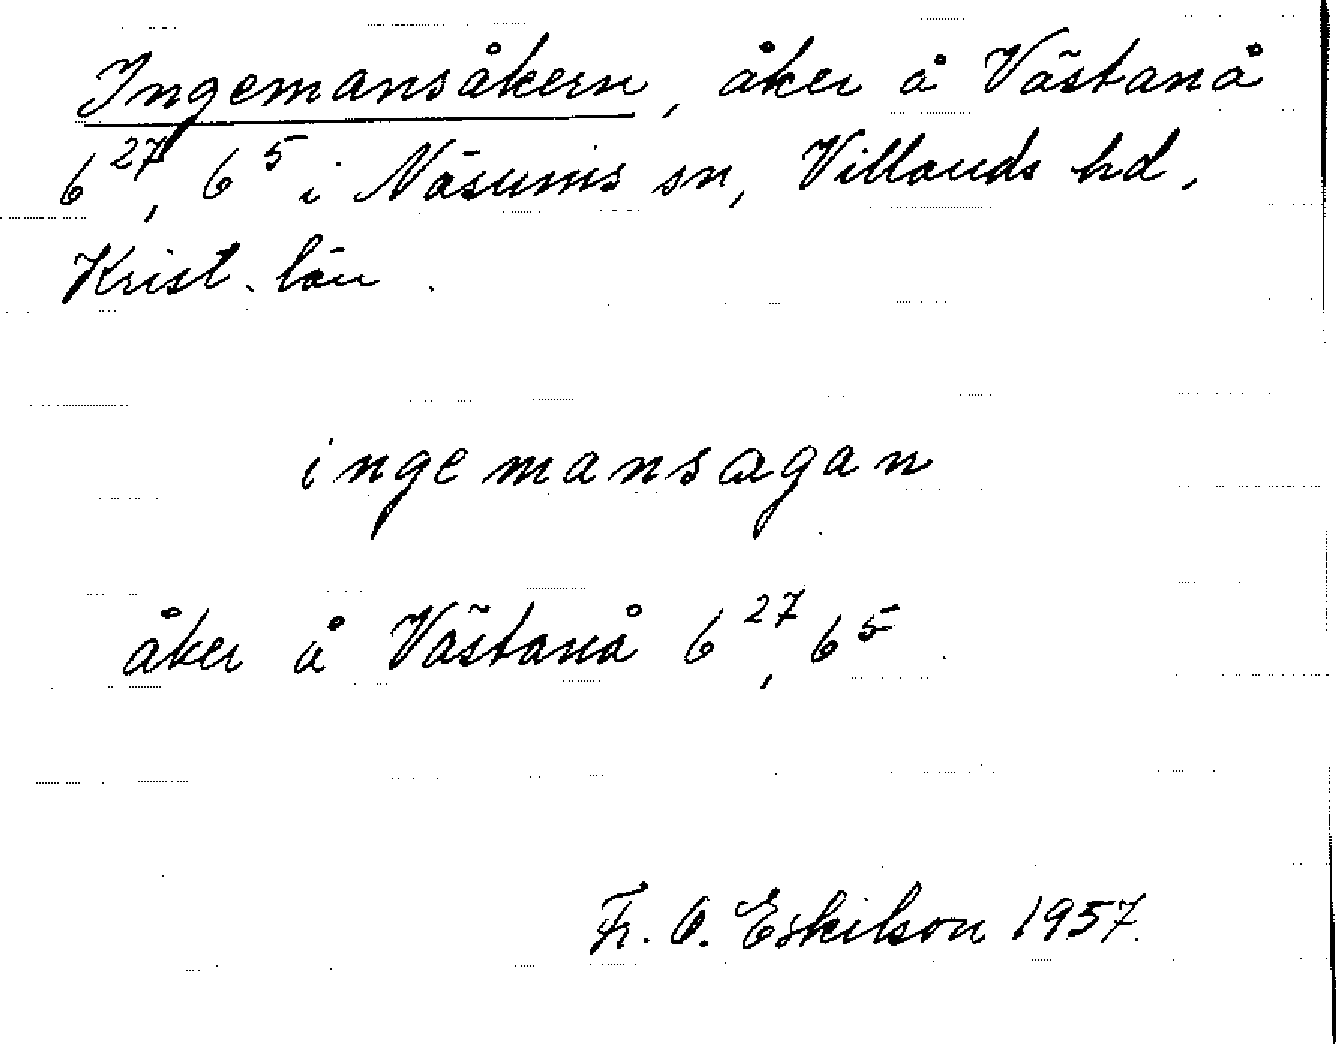 Ingemansåkern, åker å Västanå
6²⁷, 6⁵ i Näsums sn, Villands hd,
Krist. län.
ingemansagan
åker å Västanå 6²⁷, 6⁵.
Fr. O. Eskilson 1957.